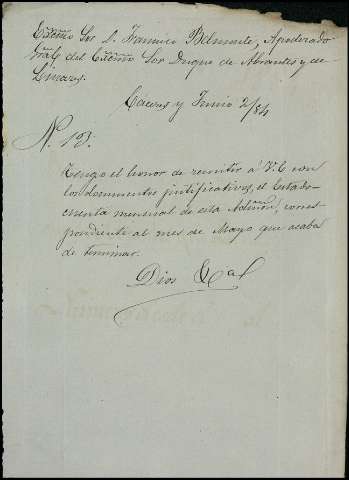 Excmo Sor D. Francisco Belmonte, Apoderado
Gral del Excmo Sor Duque de Abrantes y de
Linares.
Cáceres y Junio 2/84
N. 13.
Tengo el honor de remitir á V.E con
los documentos justificativos, el Estado-
cuenta mensual de esta Admon, corres-
pondiente al mes de Mayo que acaba
de terminar.
Dios &a